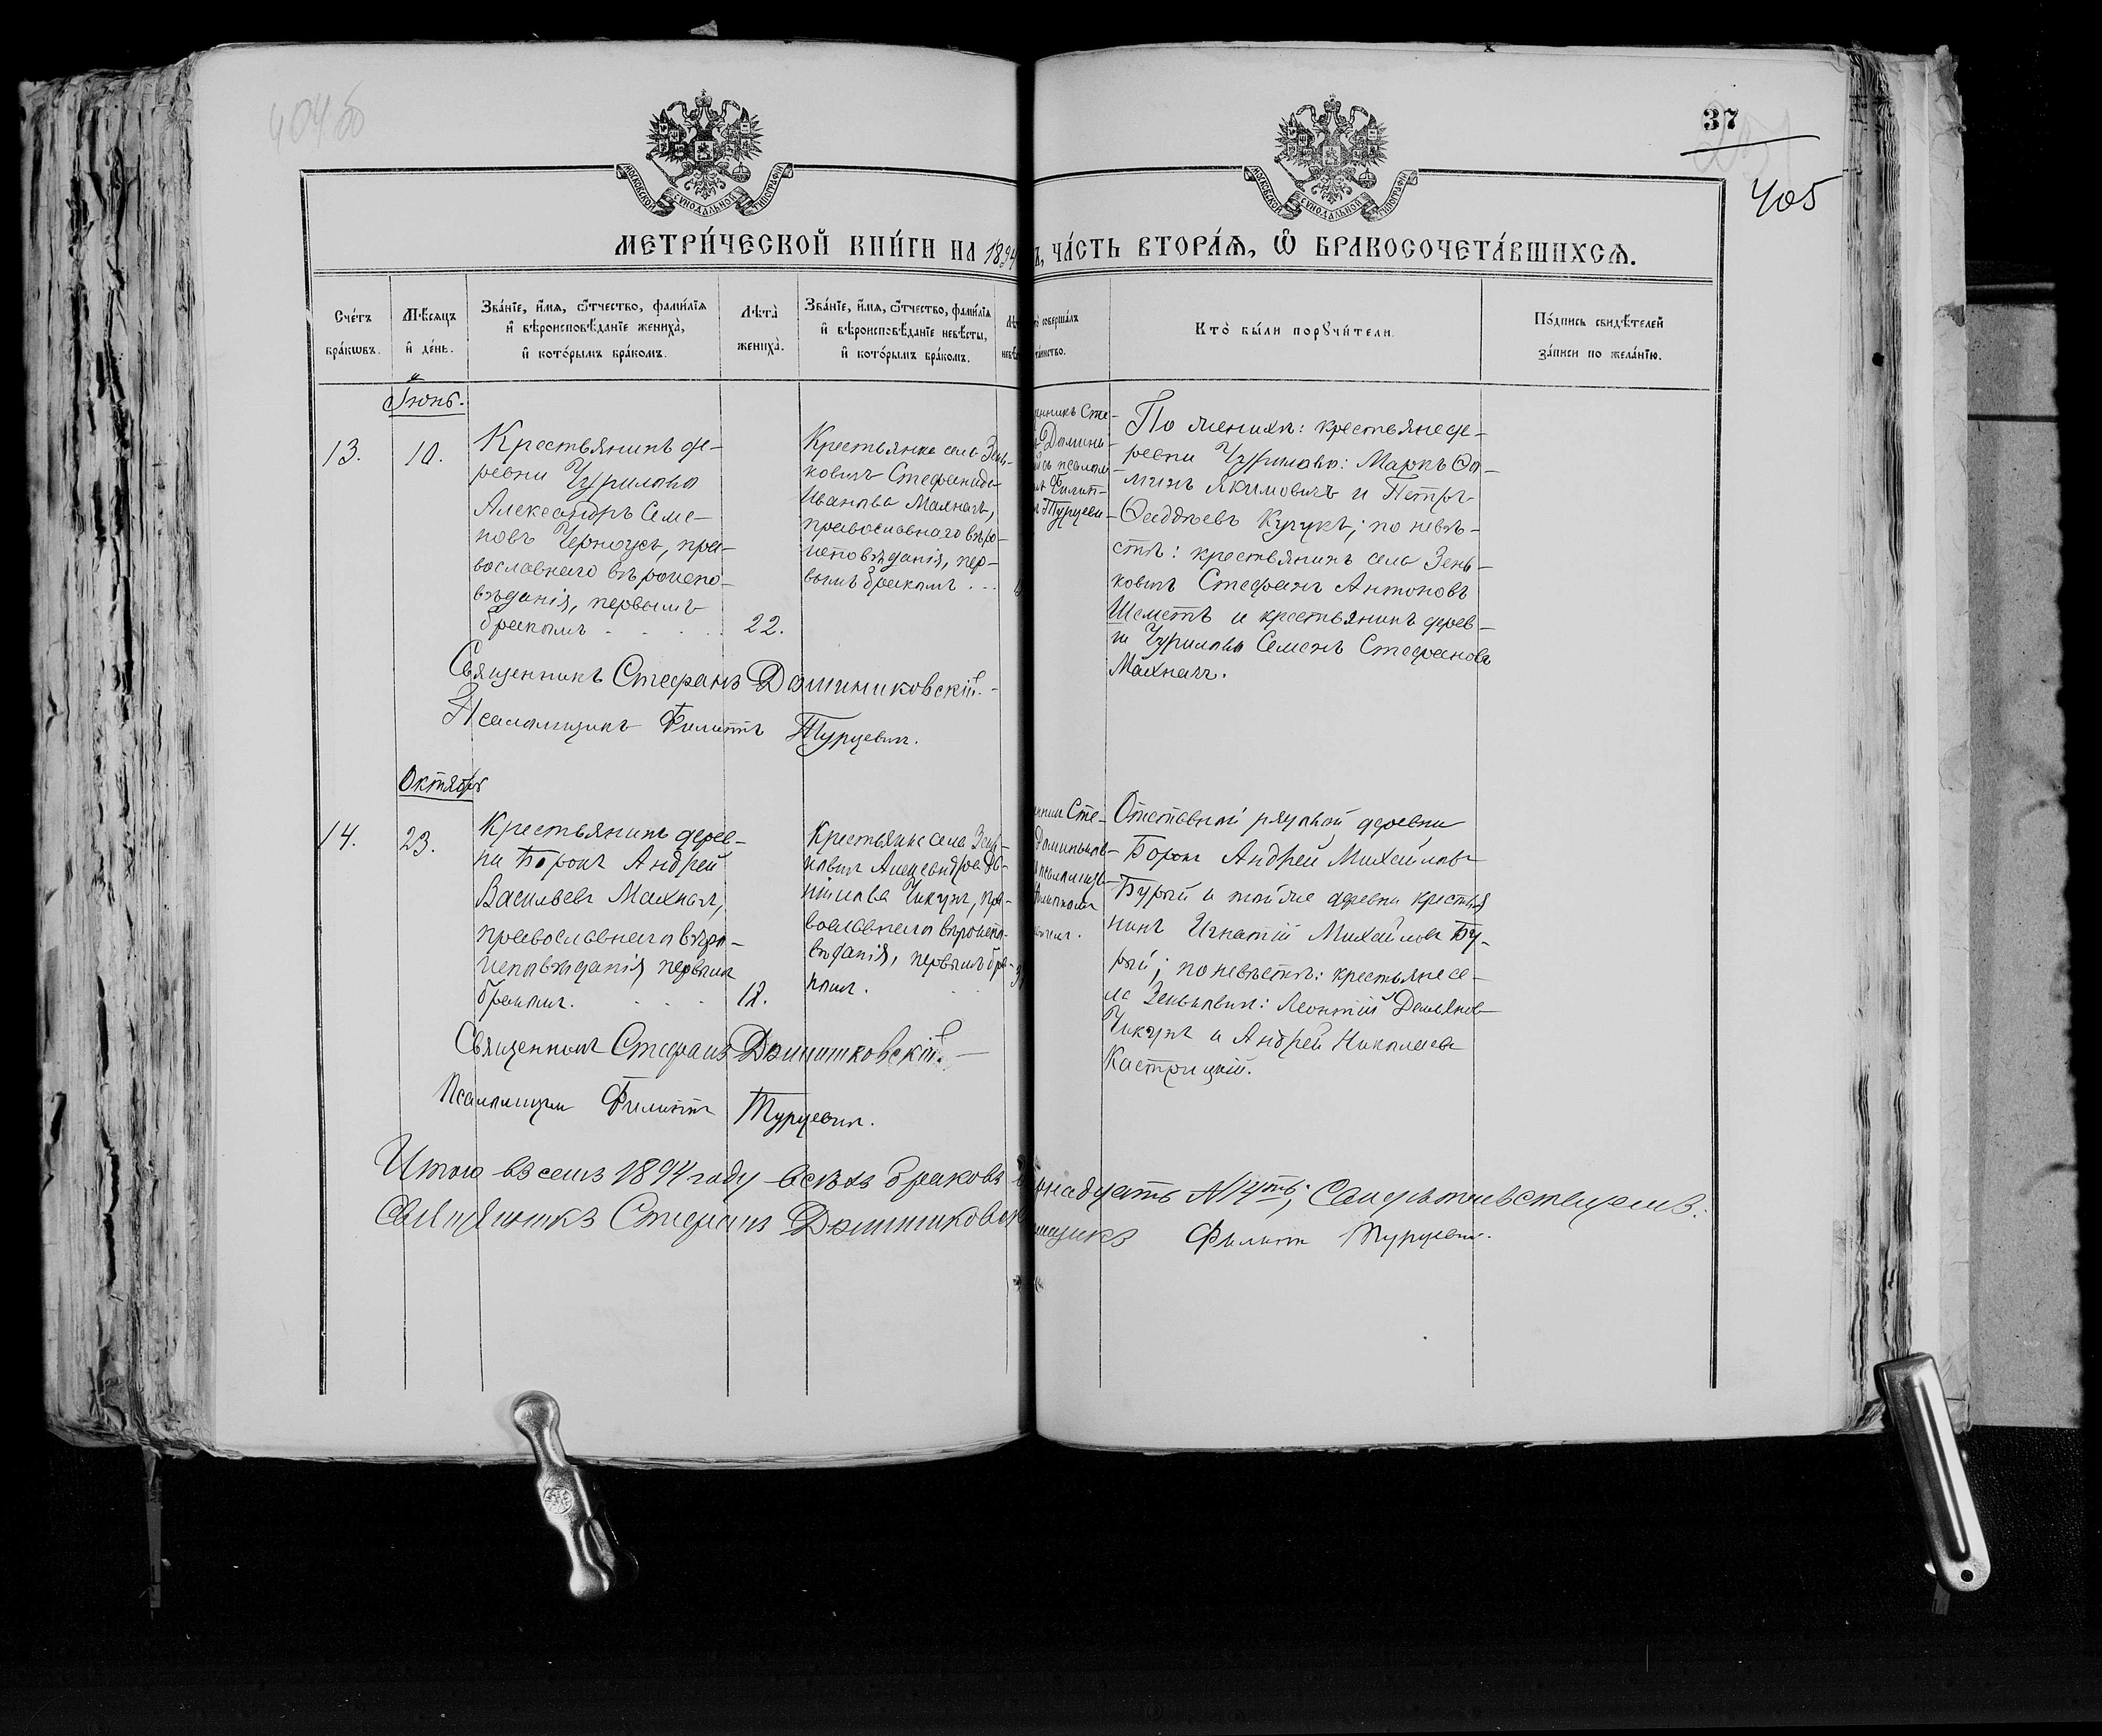 404об
37
405
МОСКОВСКОЙ СѴНОДАЛЬНОЙ ТИПОГРАФІИ
МОСКОВСКОЙ СѴНОДАЛЬНОЙ ТИПОГРАФІИ
МЕТРИ́ЧЕСКОЙ КНИ́ГИ НА 1894
ЧА́СТЬ ВТОРА́Ѧ, Ѡ҆ БРАКОСОЧЕТА́ВШИХСѦ.
Сче́тъ
бра́кѡвъ.
Мѣ́сяцъ
и҆ де́нь.
Зва́нїе, и҆́мя, ѻ҆́тчество, фами́лїя
и҆ вѣроисповѣ́данїе жениха̀,
и҆ кото́рымъ бра́комъ.
Лѣ́та
жениха̀.
Зва́нїе, и҆́мя, ѻ҆́тчество, фами́лїя
и҆ вѣроисповѣ́данїе невѣ́сты,
и҆ кото́рымъ бра́комъ.
соверша́лъ
Кто̀ бы́ли порꙋчи́тели.
По́дпись свидѣ́телей
за́писи по жела́нїю.
Іюнь.
13.
10.
Крестьянинъ де-
ревни Чурилово
Александръ Семе-
новъ Черноусъ, пра-
вославнаго вѣроиспо-
вѣданія, первымъ
бракомъ . . . .
22.
Крестьянка села Зень-
ковичъ Стефанида
Иванова Махначъ,
православнаго вѣро-
исповѣданія, пер-
вымъ бракомъ . . .
енникъ Сте-
Домини-
съ псалом-
Филип-
Туруеви-
По женихѣ: крестьяне де-
ревни Чурилово: Маркъ Ѳо-
минъ Якимовичъ и Петръ
Ѳаддѣевъ Кучукъ; по невѣ-
стѣ: крестьянинъ села Зень-
ковичъ Стефанъ Антоновъ
Шеметъ и крестьянинъ дерев-
ни Чурилово Семенъ Стефановъ
Махначъ.
Священникъ Стефанъ Доминиковскій.-
Псаломщикъ Филиппъ Туруевич.
Октябрь
14.
23.
Крестьянинъ дерев-
ни Борокъ Андрей
Васильевъ Махнач,
православнаго вѣро-
исповѣданія, первымъ
бракомъ. . . .
18.
Крестьянка села Зень-
ковичъ Александра Да-
нилова Чикунъ, пра-
вославнаго вѣроиспо-
вѣданія, первымъ бра-
комъ.
енникъ Сте-
Домиников-
псаломщи-
Филиппомъ
Отставной рядовой деревни
Борокъ Андрей Михайловъ
Бурый и той же деревни крестья
нинъ Игнатій Михайловъ Бу-
рый; по невѣстѣ: крестьяне се-
ла Зеньковичъ: Леонтій Демьяновъ
Чикунъ и Андрей Николаевъ
Кастрицкій.
Священникъ Стефанъ Доминиковскій.-
Псаломщикъ Филиппъ Туруевич.
Итого въ семъ 1894 году всѣхъ браковъ
надцать №14ть; Свидѣтельствуемъ.
Священникъ Стефанъ Доминиковск
мщикъ Филиппъ Туруевич.